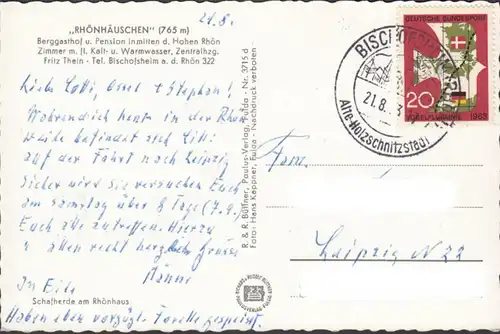 21.8.
„RHÖNHÄUSCHEN" (765 m)
Berggasthof u. Pension inmitten d. Hohen Rhön
Zimmer m. fl. Kalt- u. Warmwasser, Zentralhzg.
Fritz Thein - Tel. Bischofsheim a. d. Rhön 322
Liebe Lotti, & Stephan!
Während ich heute in der Rhön
weile befindet sich Litti
auf der Fahrt nach Leipzig
Sicher wird sie versuchen Euch
am Samstag über 8 Tage (7.9.)
Euch alle antreffen. Hierzu
u allen recht herzliche Grüsse
In Eile
Schafherde am Rhönhaus
Haben eben vorzügl. Forelle gespeist.
R. & R. Büttner, Paulus-Verlag, Fulda - Nr. 3715 d
Foto: Hans Kappner, Fulda - Nachdruck verboten
BISCHOFSHEIM
21.8.
Alte Holzschnitzstadt
DEUTSCHE BUNDESPOST
20
VOGELFLUGLINIE 1963
Fam.
Leipzig N 22